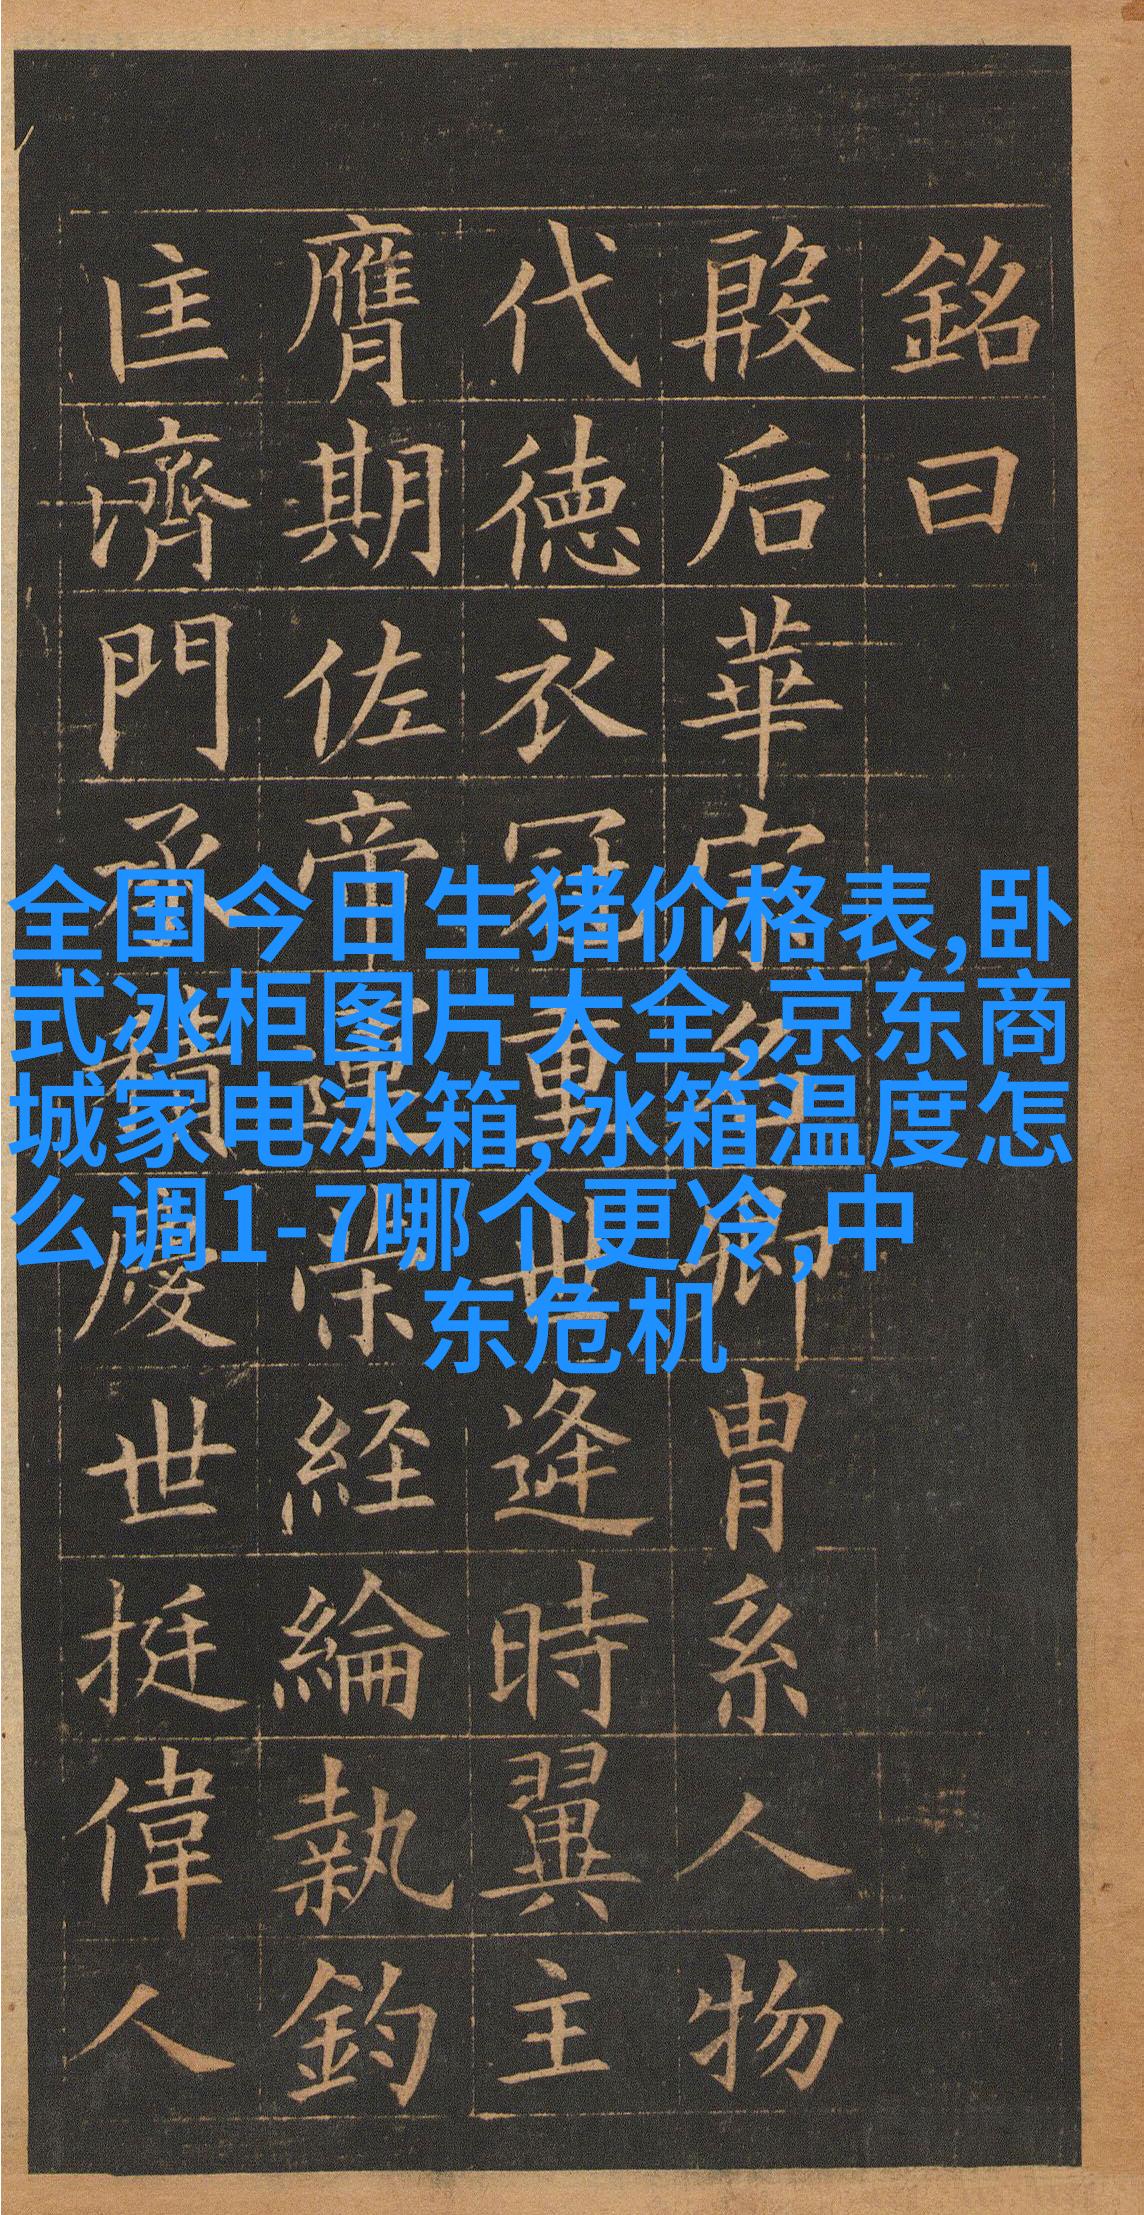 銘曰
殷后華宗名卿冑系人物
代德衣冠重世逢時翼主
膺期佐帝梁経綸執鈞
匡濟門承積慶世挺偉人
全国今日生猪价格表,卧
式冰柜图片大全,京东商
城家电冰箱,冰箱温度怎
么调1-7哪个更冷,中
东危机